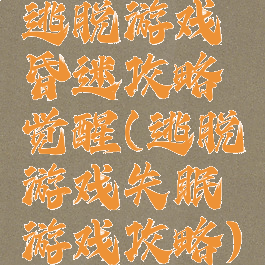 逃脱游戏
昏迷攻略
觉醒(逃脱
游戏失眠
游戏攻略)